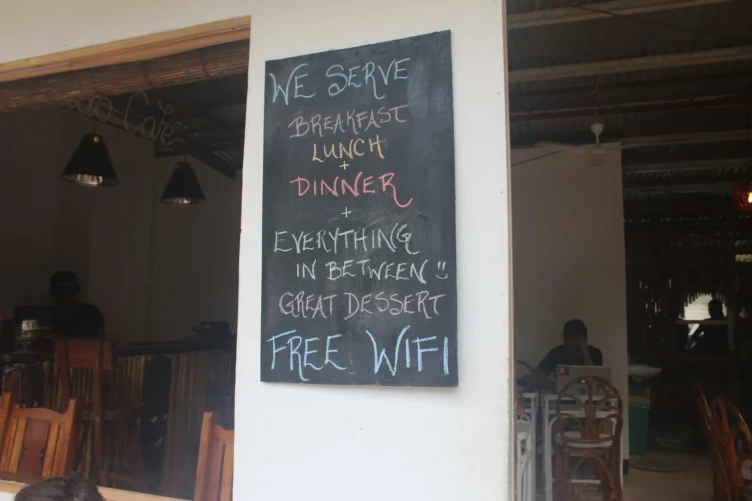 WE SERVE
BREAKFAST
LUNCH
+
DINNER
+
EVERYTHING
IN BETWEEN
GREAT DESSERT
FREE WIFI
Cafe